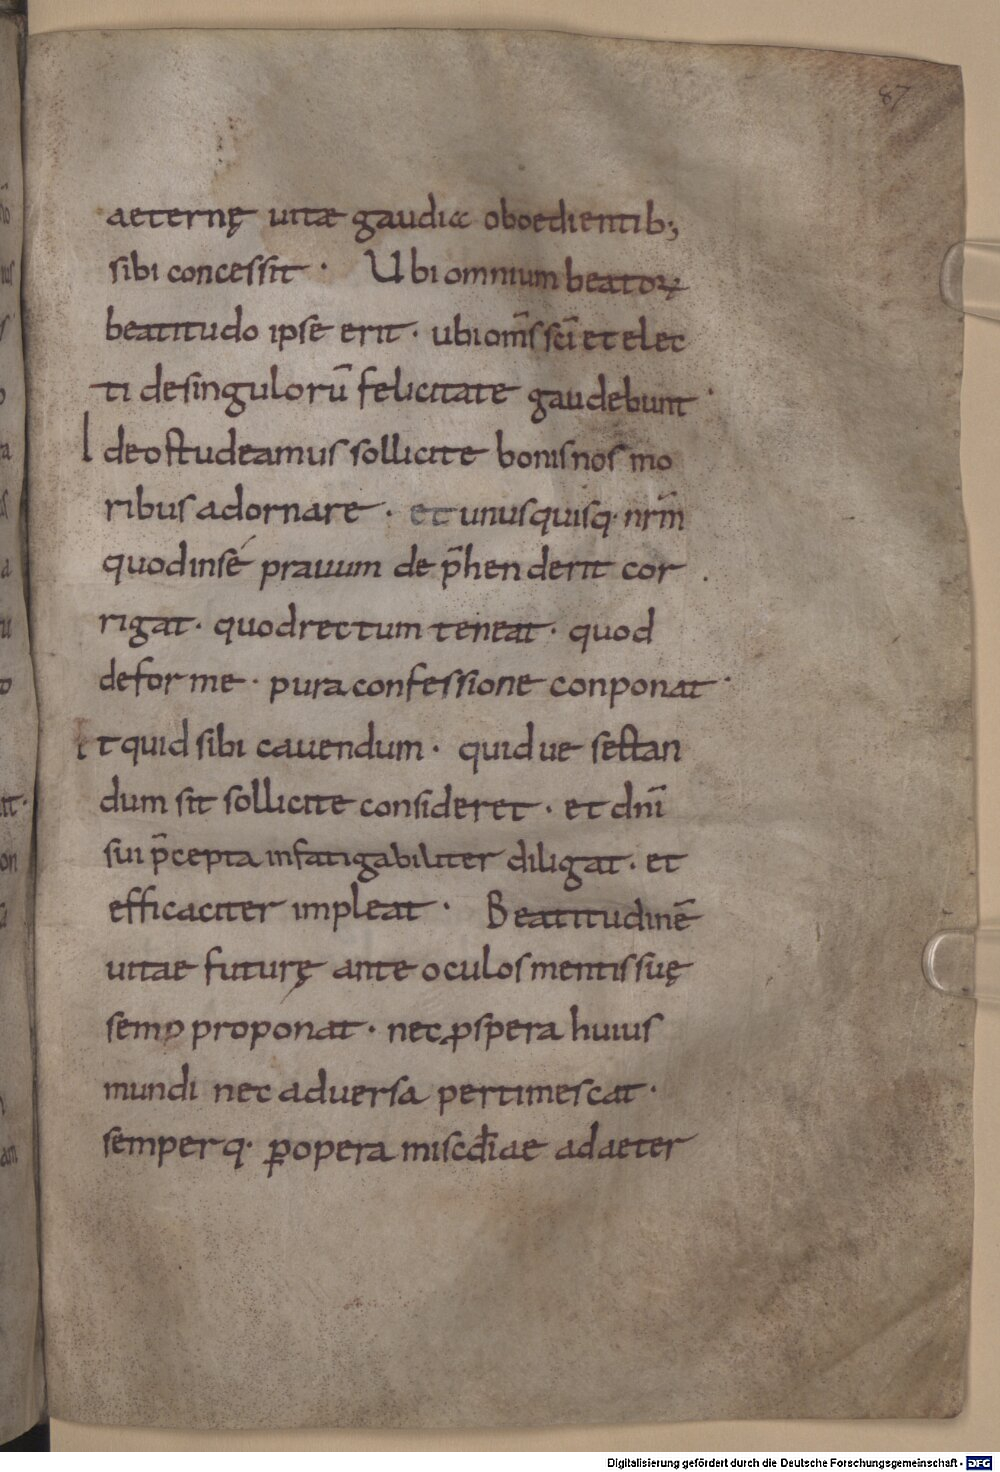 87
aeternę uitae gaudia oboedientib;
sibi concessit · Ubi omnium beatoꝝ
beatitudo ipse erit · ubi om̄s sc̄i et elec
ti de singulorū felicitate gaudebunt ·
Ideo studeamus sollicite bonis nos mo
ribus adornare · et unusquisq· nr̄m
quod in sé prauum dep̄henderit cor
rigat · quod rectum teneat · quod
deforme · pura confessione conponat ·
Et quid sibi cauendum · quid ue sectan
dum sit sollicite consideret · et dn̄i
sui p̄cepta infatigabiliter diligat · et
efficaciter impleat · Beatitudinē
uitae futurę ante oculos mentis suę
semp proponat · nec ꝓspera huius
mundi nec aduersa pertimescat ·
semperq· ꝑ opera misc̄diae ad aeter
Digitalisierung gefördert durch die Deutsche Forschungsgemeinschaft - DFG